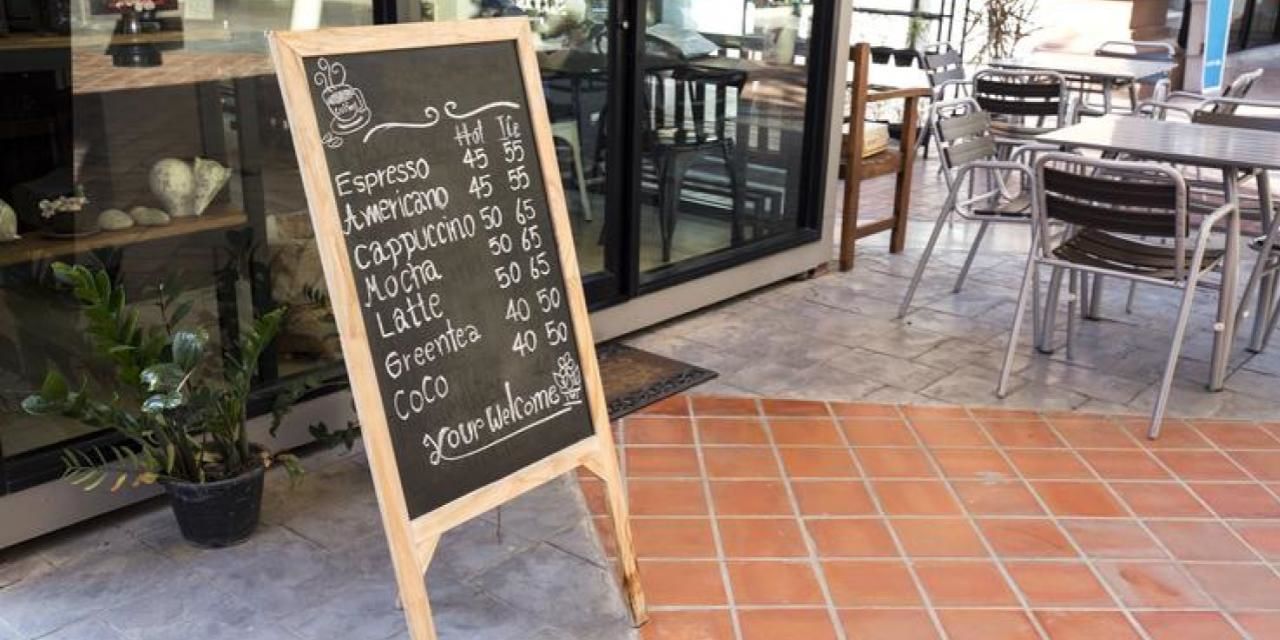 Hot Ice
Espresso 45 55
Americano 45 55
Cappuccino 50 65
Mocha 50 65
Latte 50 65
Greentea 40 50
CoCo 40 50
your Welcome